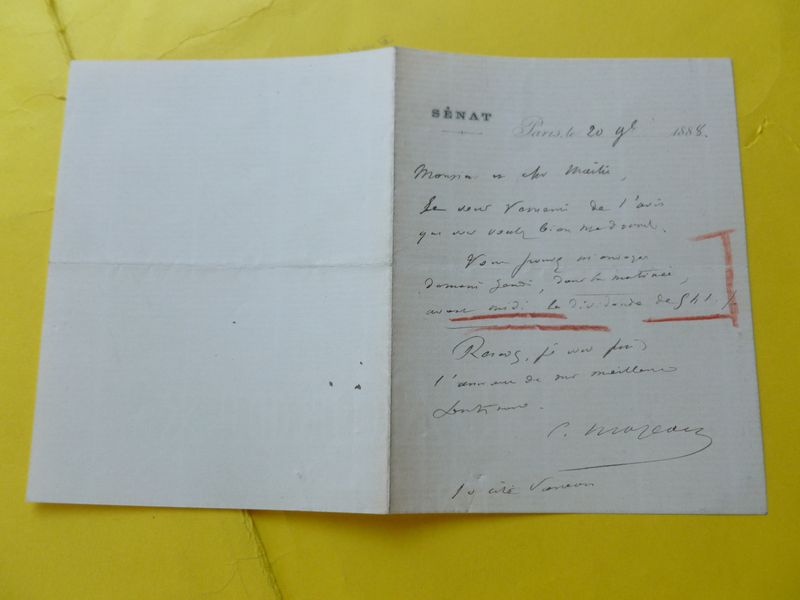 SÉNAT
Paris, le 20 9bre 1888.
Monsieur et cher Maître,
Je vous remercie de l'avis
que vous voulez bien me donner.
Vous pouvez m'envoyer
demain Jeudi, dans la matinée,
avant midi le dividende de 541.
Recevez, je vous prie
l'assurance de mes meilleurs
sentiments.
C. Mazeau
10 cité Vaneau